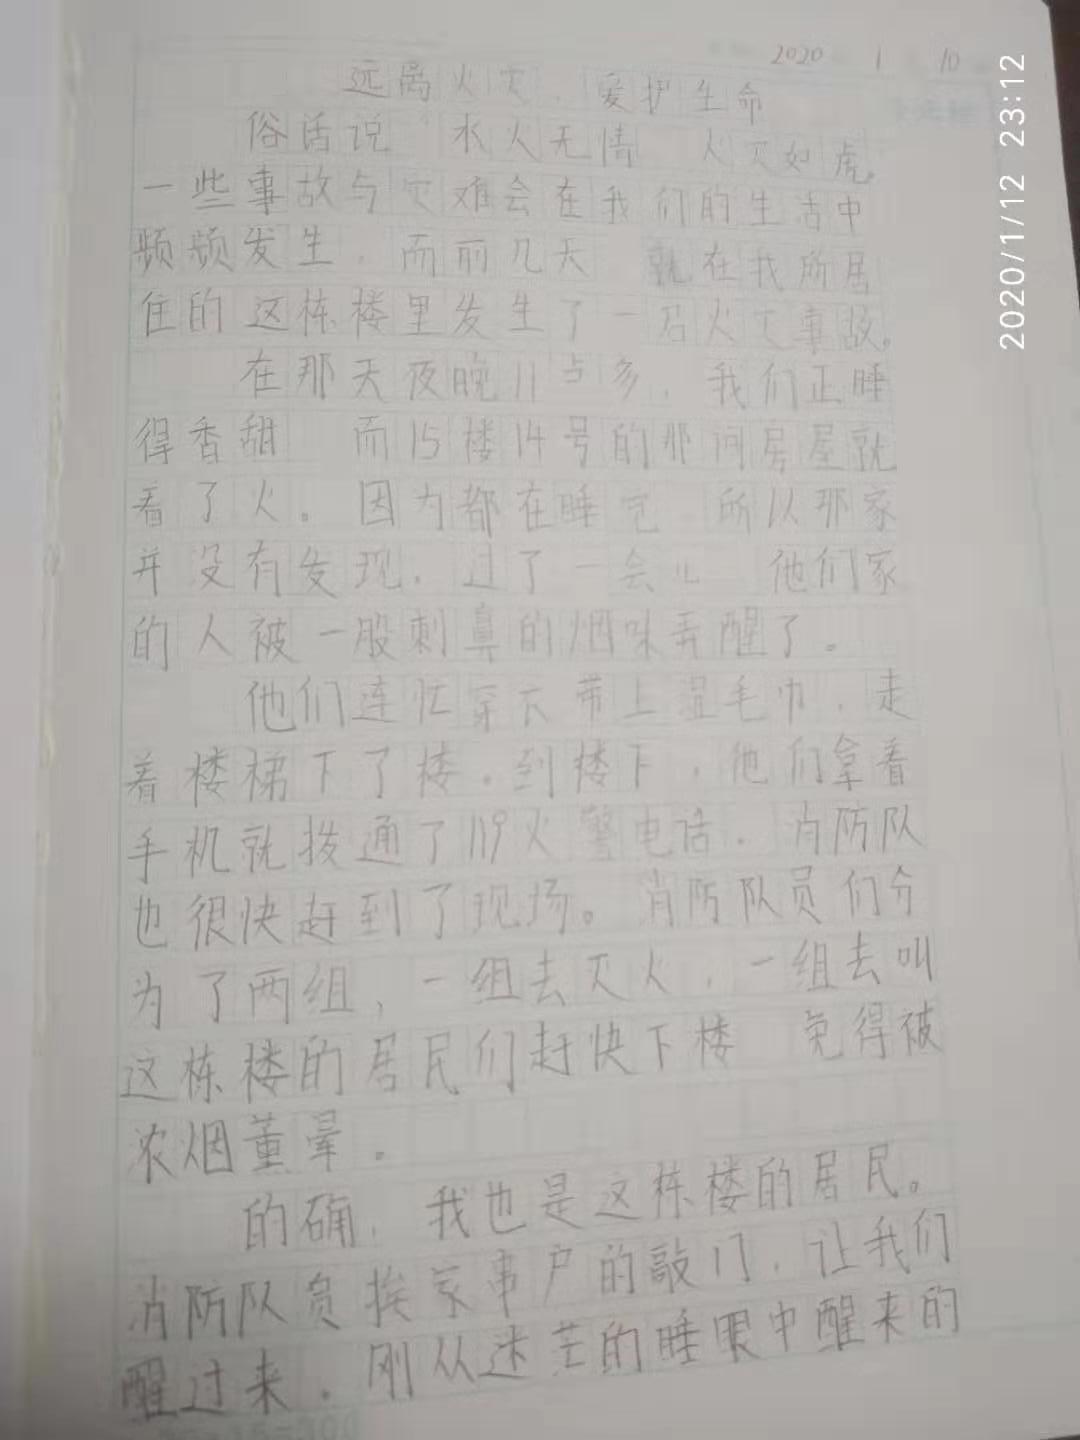 2020 1 10
远离火灾,爱护生命
俗话说“水火无情 火灾如虎。
一些事故与灾难会在我们的生活中
频频发生,而前几天 就在我所居
住的这栋楼里发生了一起火灾事故。
在那天夜晚11点多,我们正睡
得香甜 而15楼14号的那间房屋就
着了火。因为都在睡觉 所以那家
并没有发现,过了一会儿 他们家
的人被一股刺鼻的烟味弄醒了。
他们连忙穿衣带上湿毛巾,走
着楼梯下了楼.到楼下,他们拿着
手机就拨通了119火警电话.消防队
也很快赶到了现场。消防队员们分
为了两组,一组去灭火,一组去叫
这栋楼的居民们赶快下楼 免得被
浓烟董晕.
的确,我也是这栋楼的居民。
消防队员挨家串户的敲门,让我们
醒过来.刚从迷芒的睡眼中醒来的
2020/1/12 23:12